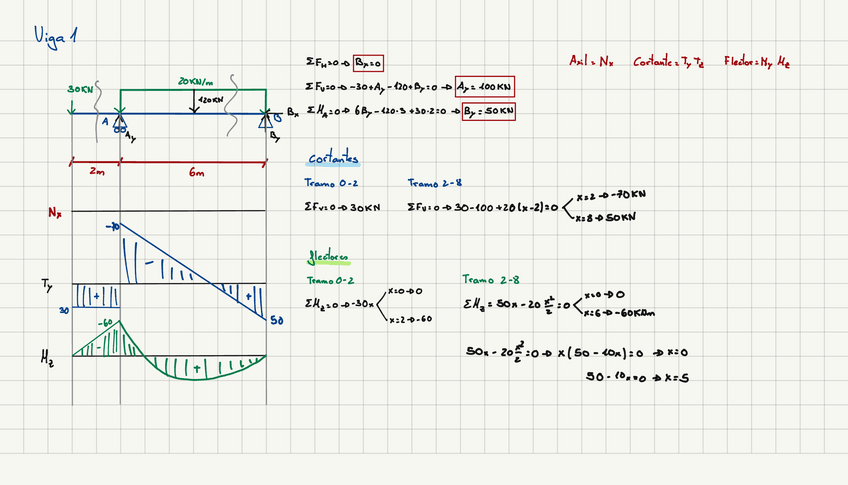 Viga 1
30KN
20KN/m
120KN
A
Ay
B
Bx
By
2m
6m
Nx
-70
Ty
30
50
-60
Mz
ΣFH=0→ Bx=0
ΣFV=0→ -30+Ay-120+By=0 → Ay=100KN
ΣMA=0→ 6By-120·3+30·2=0 → By=50KN
Axil=Nx Cortante=Ty Tz Flector=My Mz
Cortantes
Tramo 0-2 Tramo 2-8
ΣFV=0→30KN ΣFV=0→30-100+20(x-2)=0
x=2→-70KN
x=8→50KN
flectores
Tramo 0-2 Tramo 2-8
ΣMz=0→-30x
x=0→0
x=2→-60
ΣMz=50x-20 x²/2=0
x=0→0
x=6→-60KNm
50x-20 x²/2=0→ x(50-10x)=0 →x=0
50-10x=0→x=5